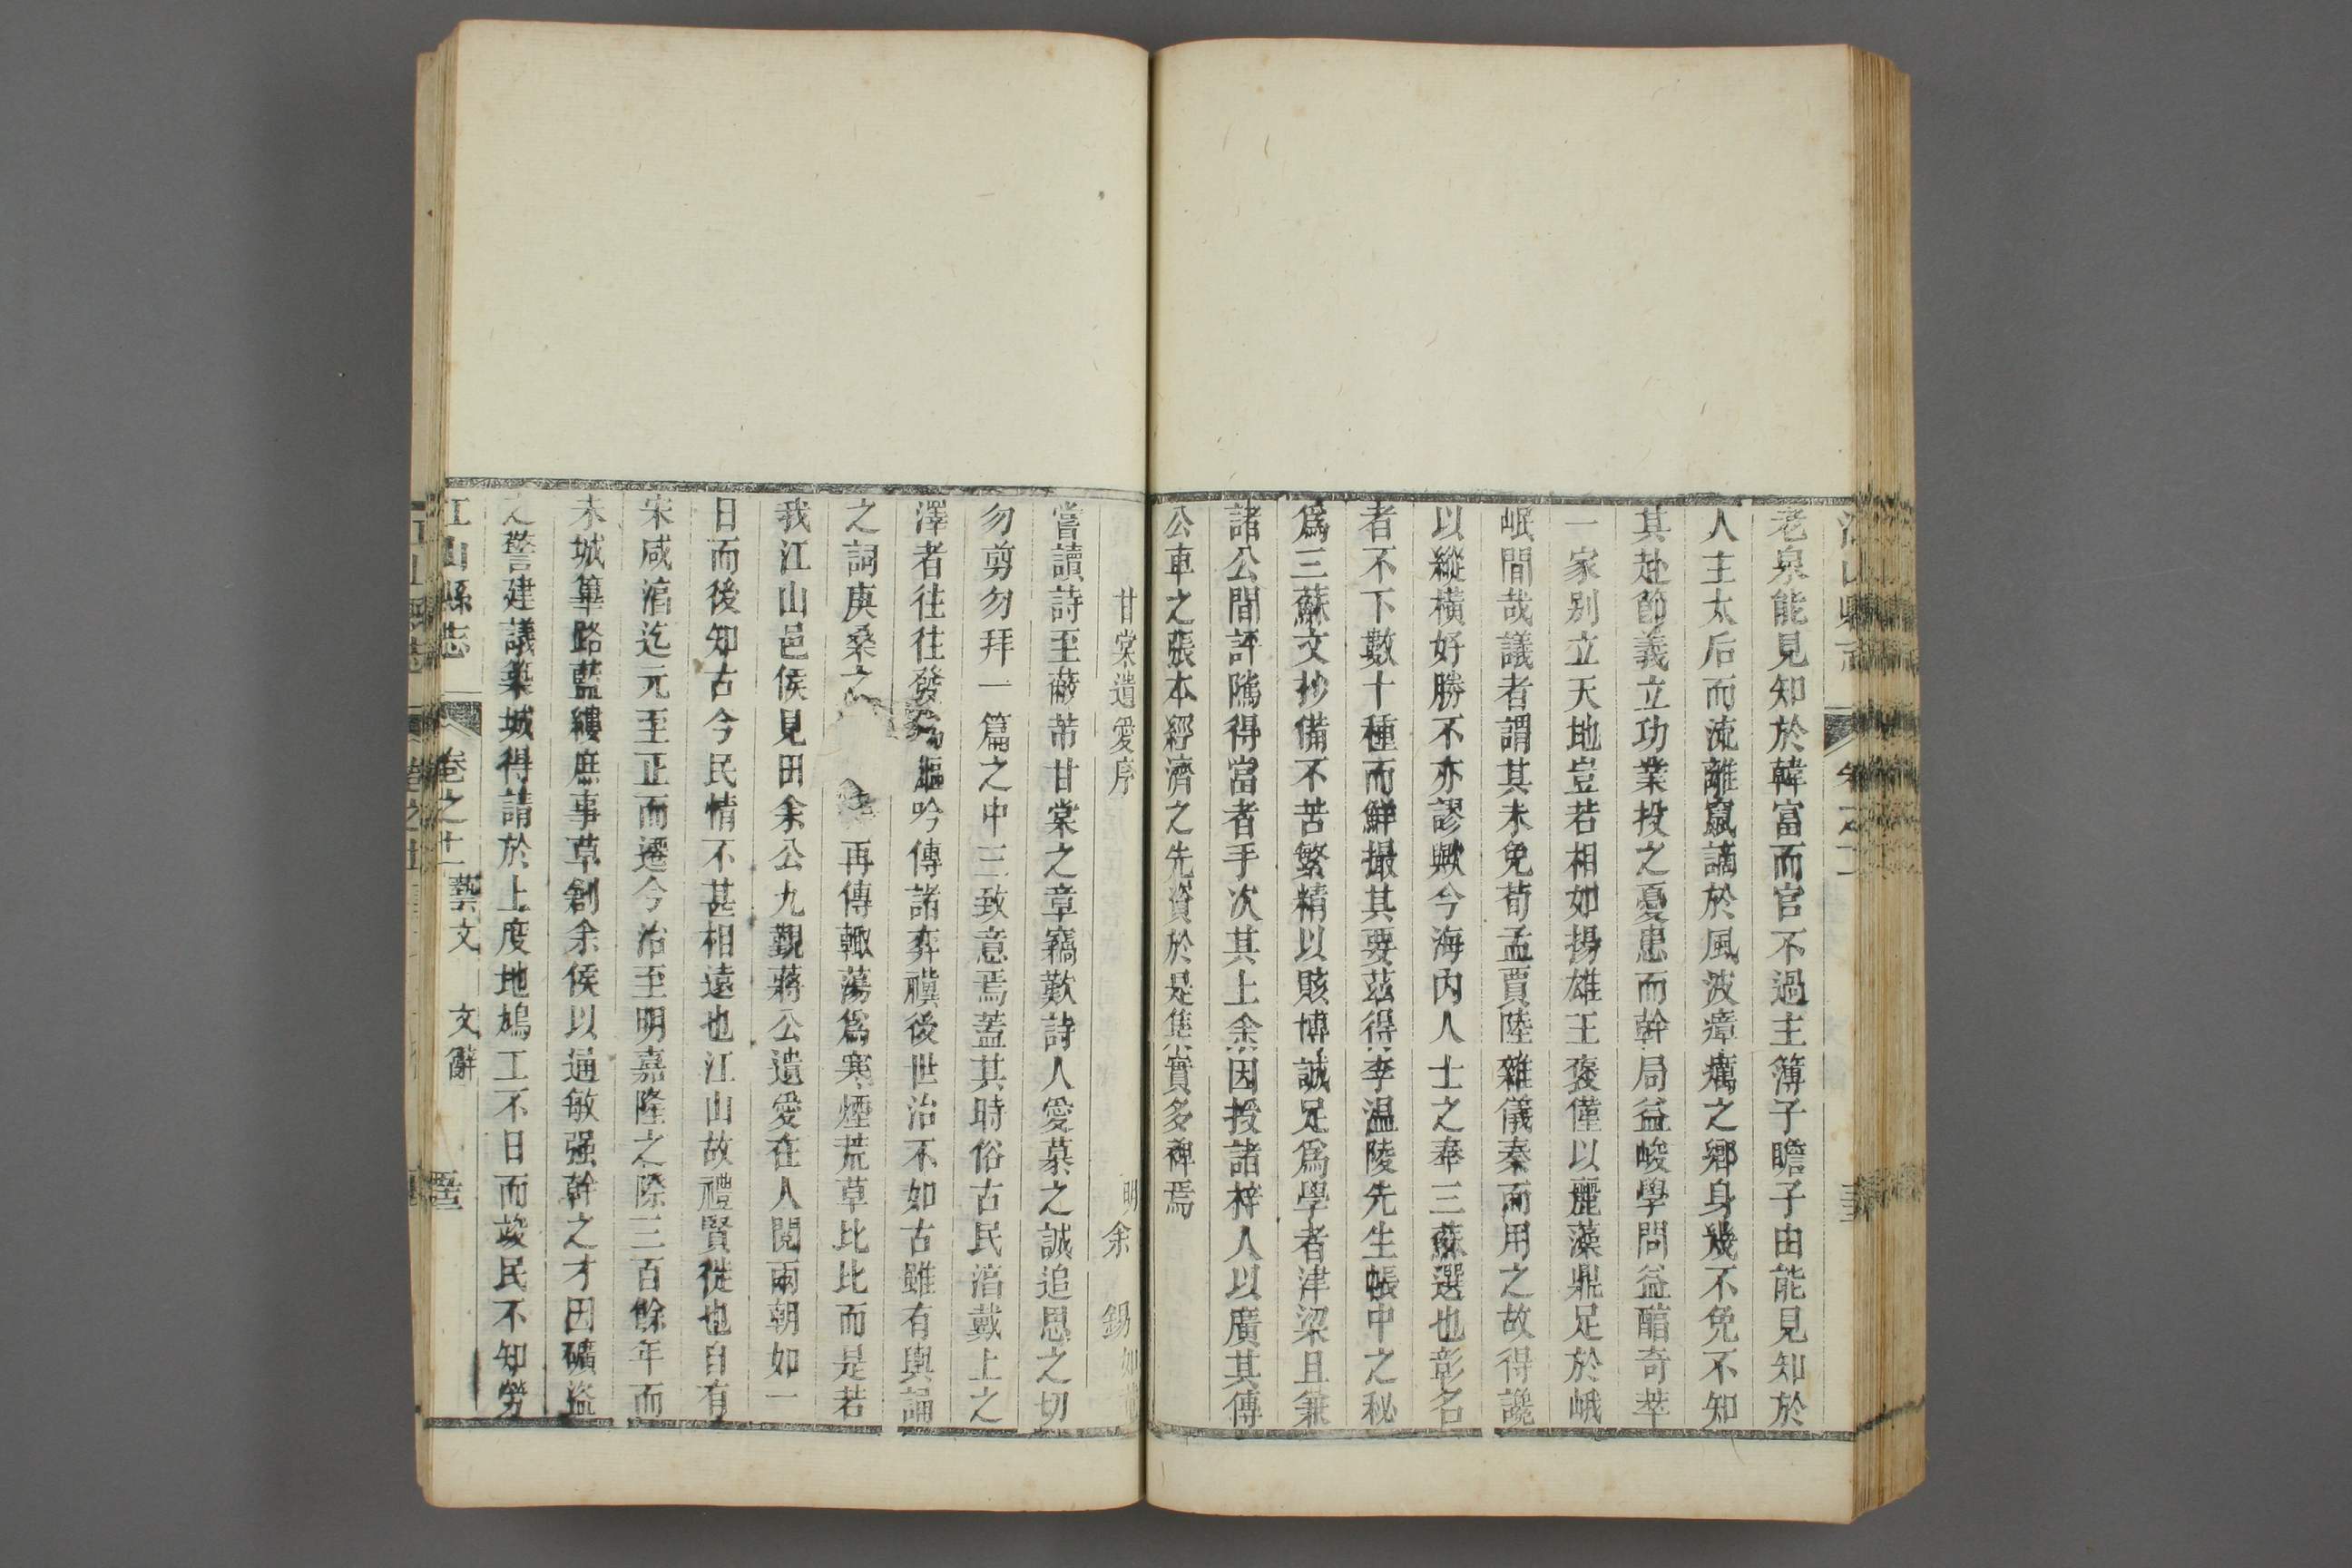 老泉能見知於韓富而官不過主簿子瞻子由能見知於
人主太后而流離竄謫於風波瘴癘之鄉身幾不免不知
其赴節義立功業投之憂患而幹局益峻學問益醞奇萃
一家别立天地豈若相如揚雄王褒僅以麗藻鼎足於峨
岷間哉議者謂其未免荀孟賈陸雜儀秦而用之故得讒
以縱横好勝不亦謬歟今海内人士之奉三蘇選也彰名
者不下數十種而鮮撮其要茲得李温陵先生帳中之秘
爲三蘇文抄備不苦繁精以賅博誠足爲學者津梁且兼
諸公間評隲得當者手次其上余因授諸梓人以廣其傳
公車之張本經濟之先資於是集實多裨焉
甘棠遺愛序
明余 錫
嘗讀詩至蔽芾甘棠之章竊歎詩人愛慕之誠追思之切
勿剪勿拜一篇之中三致意焉蓋其時俗古民淳戴上之
澤者往往發爲謳吟傳諸弈禩後世治不如古雖有輿誦
之詞庚桑之 再傳輙蕩爲寒煙荒草比比而是若
我江山邑侯見田余公九觀蔣公遺愛在人閲兩朝如一
日而後知古今民情不甚相遠也江山故禮賢徙也自有
宋咸淳迄元至正而遷今治至明嘉隆之際三百餘年而
未城篳路藍縷庶事草創余侯以通敏强幹之才因礦盜
之警建議築城得請於上度地鳩工不日而竣民不知勞
江山縣志 卷之十一 藝文 文辭